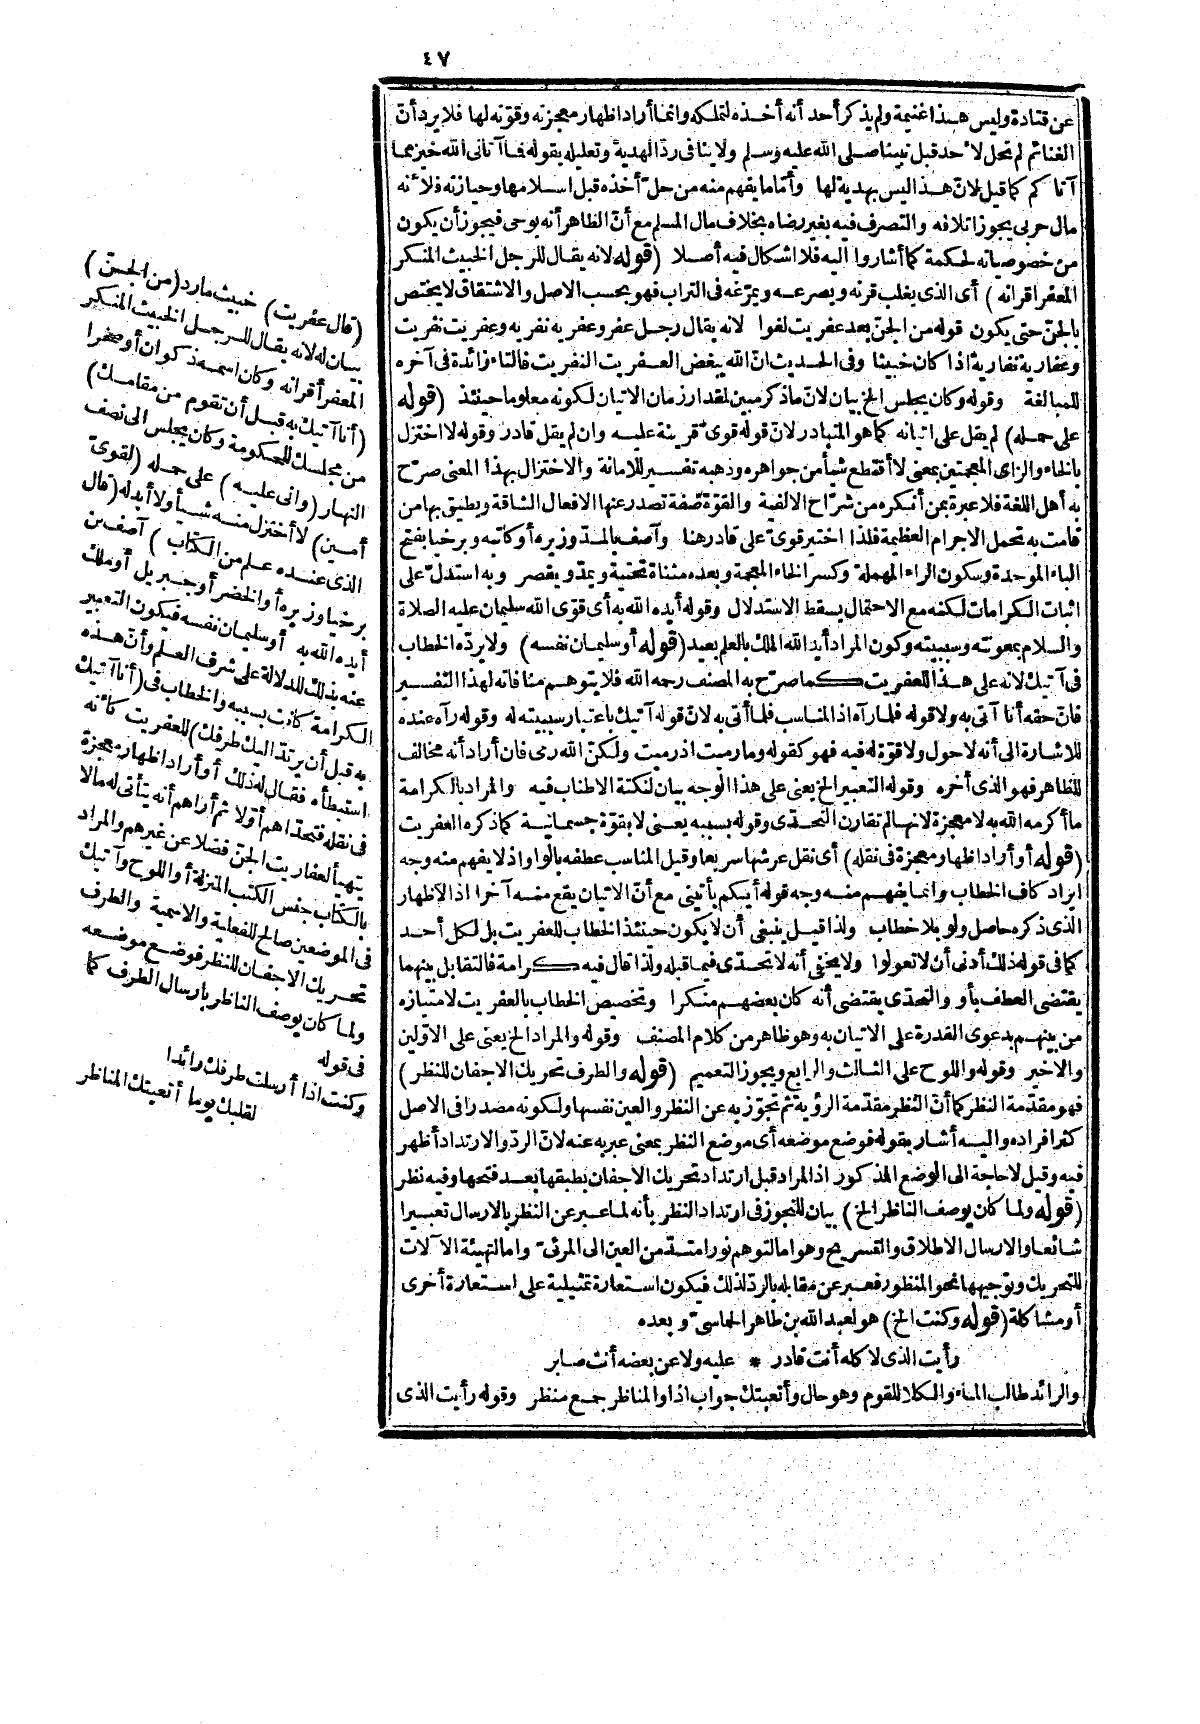 ٤٧
عن قتادة وليس هذا غنيمة ولم يذكر أحد أنه أخذه لتملكه وانما أراد اظهار معجزته وقوّته لها فلا يرد أنّ
الغنائم لم تحل لاحد قبل نبينا صلى الله عليه وسلم ولا ينافى ردّ الهدية وتعليله بقوله فما آتانى الله خير مما
آتاكم كما قيل لانّ هذا ليس بهدية لها وأمّا ما يفهم منه من حلّ أخذه قبل اسلامها وحيازته فلأنه
مال حربى يجوز اتلافه والتصرف فيه بغير رضاه بخلاف مال المسلم مع أنّ الظاهر أنه بوحى فيجوز أن يكون
من خصوصياته لحكمة كما أشاروا اليه فلا اشكال فيه أصلا (قوله لانه يقال للرجل الخبيث المنكر
المعفر اقرانه) أى الذى يغلب قرنه ويصرعه ويمرّغه فى التراب فهو بحسب الاصل والاشتقاق لا يختص
بالجنّ حتى يكون قوله من الجنّ بعد عفريت لغوا لانه يقال رجل عفر وعفريه نفريه وعفريت نفريت
وعفارية نفارية اذا كان خبيثا وفى الحديث انّ الله يبغض العفريت النفريت فالتاء زائدة فى آخره
للمبالغة وقوله وكان يجلس الخ بيان لانّ ما ذكر مبين لمقدار زمان الاتيان لكونه معلوما حينئذ (قوله
على حمله) لم يقل على اتيانه كما هو المتبادر لانّ قوله قوىّ قرينة عليه وان لم يقل قادر وقوله لا اختزل
بالخاء والزاى المعجمتين بمعنى لا أقتطع شيأ من جواهره وذهبه تفسير للامانة والاختزال بهذا المعنى صرّح
به أهل اللغة فلا عبرة بمن أنكره من شرّاح الالفية والقوّة صفة تصدر عنها الافعال الشاقة ويطيق بها من
قامت به تحمل الاجرام العظيمة فلذا اختير قوىّ على قادر هنا وآصف بالمدّ وزيره أو كاتبه وبرخيا بفتح
الباء الموحدة وسكون الراء المهملة وكسر الخاء المعجمة وبعده مثناة تحتية ويمدّ ويقصر وبه استدلّ على
اثبات الكرامات لكنه مع الاحتمال يسقط الاستدلال وقوله أيده الله به أى قوّى الله سليمان عليه الصلاة
والسلام بمعونته وسببيته وكون المراد أيد الله الملك بالعلم بعيد (قوله أو سليمان نفسه) ولا يردّه الخطاب
فى آتيك لانه على هذا للعفريت كما صرّح به المصنف رحمه الله فلا يتوهم منافاته لهذا التفسير
فانّ حقه أنا آتى به ولا قوله فلما رآه اذ المناسب فلما أتى به لانّ قوله آتيك باعتبار سببيته له وقوله رآه عنده
للاشارة الى أنه لا حول ولا قوّة له فيه فهو كقوله وما رميت اذ رميت ولكنّ الله رمى فان أراد أنه مخالف
للظاهر فهو الذى أخره وقوله التعبير الخ يعنى على هذا الوجه بيان لنكتة الاطناب فيه والمراد بالكرامة
ما أكرمه الله به لا معجزة لانها لم تقارن التحدّى وقوله بسببه يعنى لا بقوّة جسمانية كما ذكره العفريت
(قوله أو أراد اظهار معجزة فى نقله) أى نقل عرشها سريعا وقيل المناسب عطفه بالواو اذ لا يفهم منه وجه
ايراد كاف الخطاب وانما يفهم منه وجه قوله أيكم يأتينى مع أنّ الاتيان يقع منه آخرا اذ الاظهار
الذى ذكره حاصل ولو بلا خطاب ولذا قيل ينبغى أن لا يكون حينئذ الخطاب للعفريت بل لكل أحد
كما فى قوله ذلك أدنى أن لا تعولوا ولا يخفى أنه لا تحدّى فيما قبله ولذا قال فيه كرامة فالتقابل بينهما
يقتضى العطف بأو والتحدّى يقتضى أنه كان بعضهم منكرا وتخصيص الخطاب بالعفريت لامتيازه
من بينهم بدعوى القدرة على الاتيان به وهو ظاهر من كلام المصنف وقوله والمراد الخ يعنى على الاوّلين
والاخير وقوله واللوح على الثالث والرابع ويجوز التعميم (قوله والطرف تحريك الاجفان للنظر)
فهو مقدّمة النظر كما أنّ النظر مقدّمة الرؤية ثم تجوّز به عن النظر والعين نفسها ولكونه مصدرا فى الاصل
كثر افراده واليه أشار بقوله فوضع موضعه أى موضع النظر بمعنى عبر به عنه لانّ الردّ والارتداد أظهر
فيه وقيل لا حاجة الى الوضع المذكور اذ المراد قبل ارتداد تحريك الاجفان بطبقها بعد فتحها وفيه نظر
(قوله ولما كان يوصف الناظر الخ) بيان للتجوز فى ارتداد النظر بأنه لما عبر عن النظر بالارسال تعبيرا
شائعا والارسال الاطلاق والتسريح وهو اما لتوهم نور امتدّ من العين الى المرئىّ واما لتهيئة الآلات
للتحريك وتوجيهها نحو المنظور فعبر عن مقابله بالردّ لذلك فيكون استعارة تمثيلية على استعارة أخرى
أو مشاكلة (قوله وكنت الخ) هو لعبد الله بن طاهر الحماسىّ وبعده
رأيت الذى لا كله أنت قادر * عليه ولا عن بعضه أنت صابر
والرائد طالب الماء والكلا للقوم وهو حال وأتعبتك جواب اذا والمناظر جمع منظر وقوله رأيت الذى
(قال عفريت) خبيث مارد (من الجنّ)
بيان له لانه يقال للرجل الخبيث المنكر
المعفر أقرانه وكان اسمه ذكوان أو صخرا
(أنا آتيك به قبل أن تقوم من مقامك)
من مجلسك للحكومة وكان يجلس الى نصف
النهار (وانى عليه) على حمله (لقوىّ
أمين) لا أختزل منه شيأ ولا أبدله (قال
الذى عنده علم من الكتاب) آصف بن
برخيا وزيره أو الخضر أو جبريل أو ملك
أيده الله به أو سليمان نفسه فيكون التعبير
عنه بذلك للدلالة على شرف العلم وأنّ هذه
الكرامة كانت بسببه والخطاب فى (أنا آتيك
به قبل أن يرتدّ اليك طرفك) للعفريت كأنه
استبطأه فقال له ذلك أو أراد اظهار معجزة
فى نقله فتحدّاهم أوّلا ثم أراهم أنه يتأتى له مالا
يتهيأ لعفاريت الجنّ فضلا عن غيرهم والمراد
بالكتاب جنس الكتب المنزلة أو اللوح وآتيك
فى الموضعين صالح للفعلية والاسمية والطرف
تحريك الاجفان للنظر فوضع موضعه
ولما كان يوصف الناظر بارسال الطرف كما
فى قوله
وكنت اذا أرسلت طرفك رائدا
لقلبك يوما أتعبتك المناظر